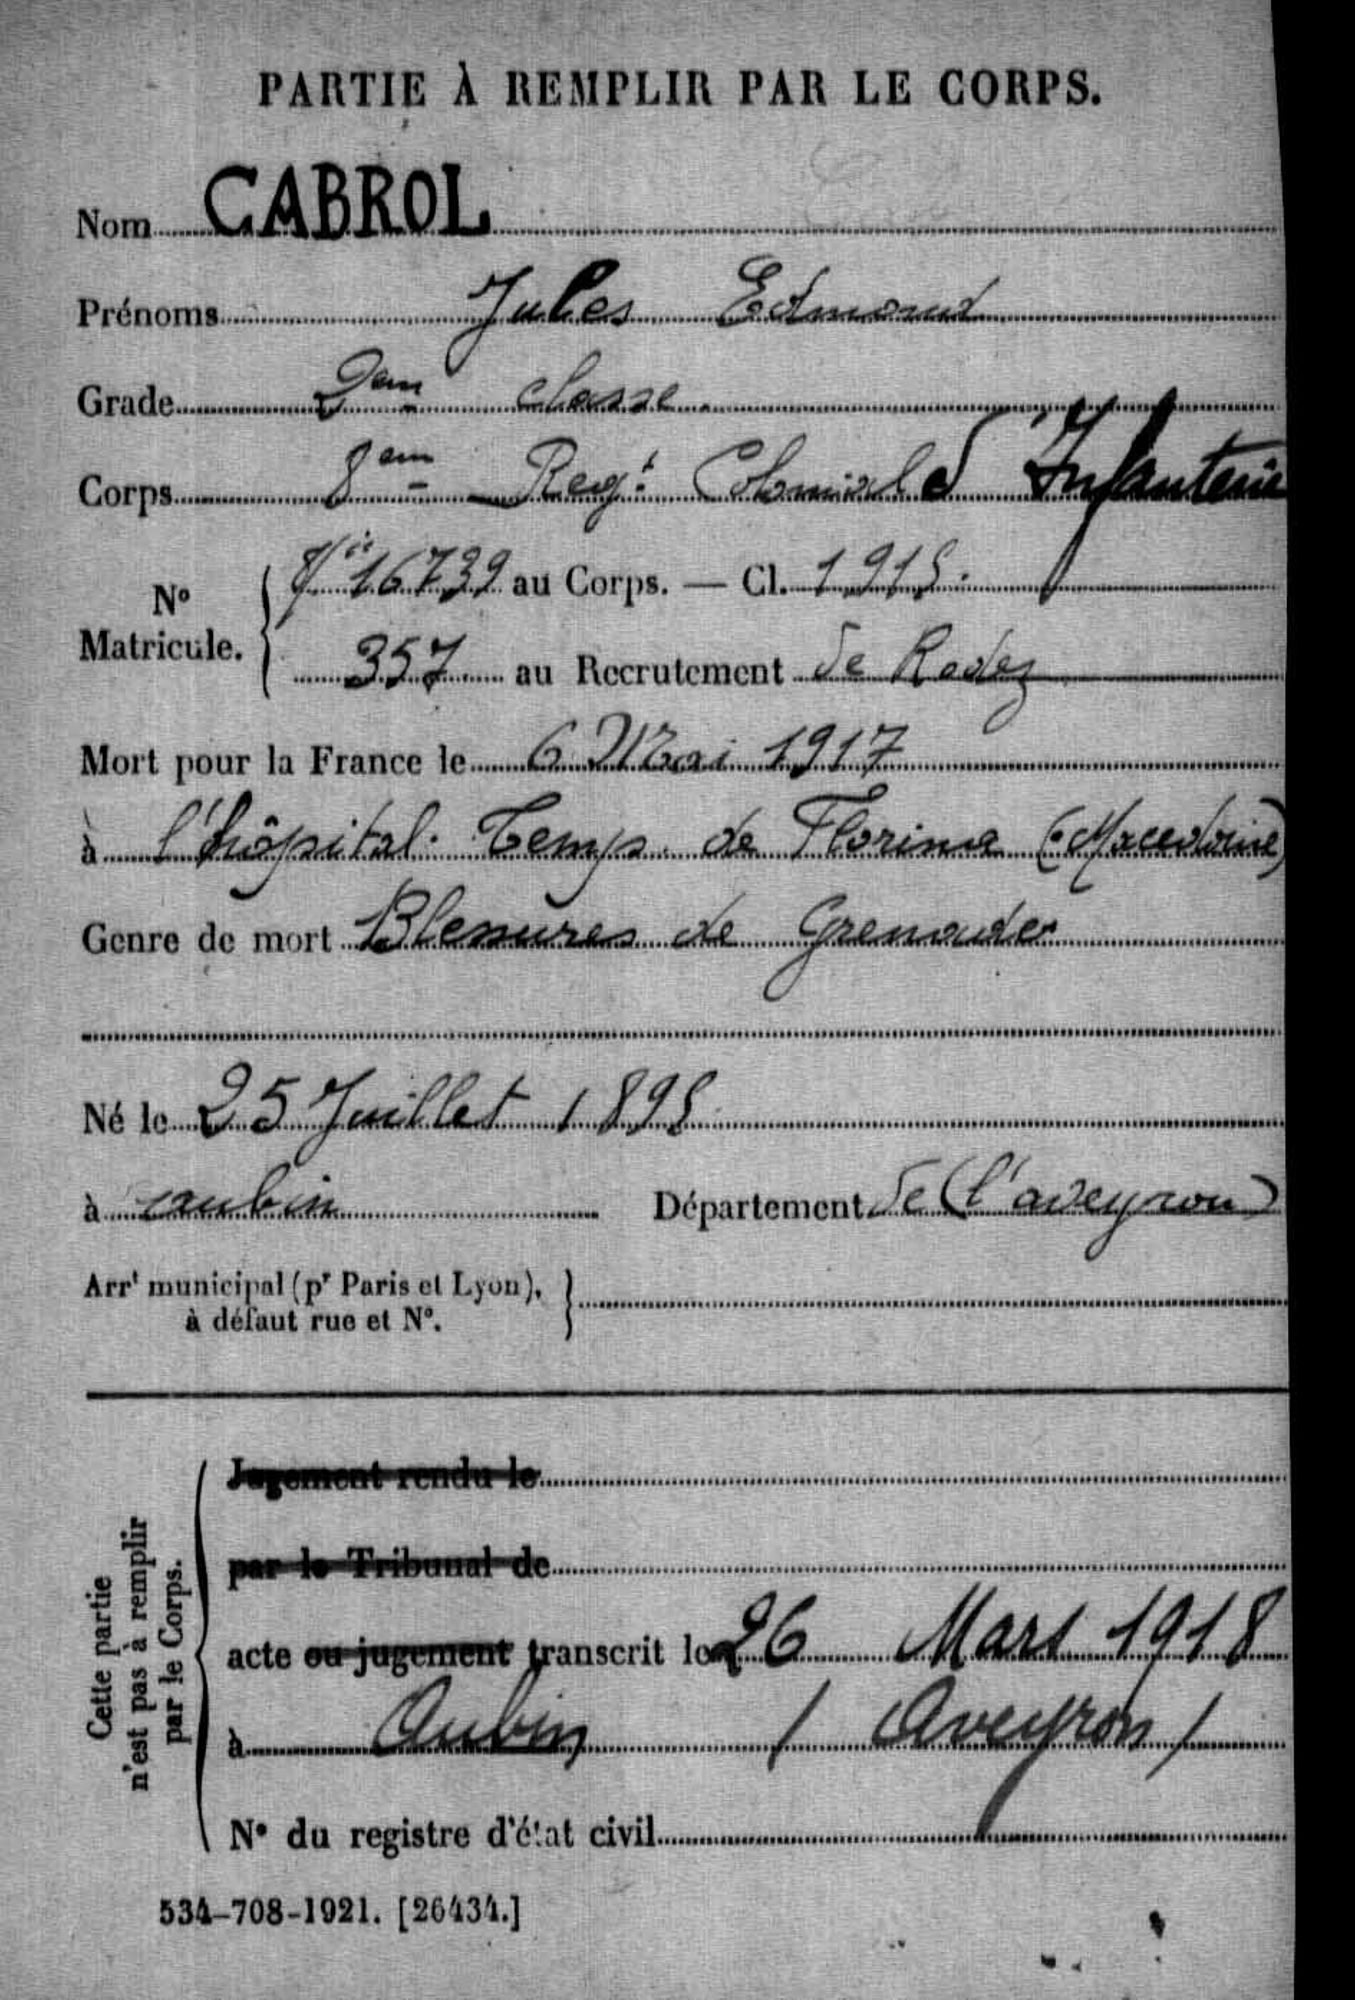 PARTIE À REMPLIR PAR LE CORPS.
Nom CABROL
Prénoms Jules Edmond
Grade 2em classe
Corps 8em Regt Colonial d'Infanterie
No Matricule. 16739 au Corps. — Cl. 1915.
357 au Recrutement de Rodez
Mort pour la France le 6 Mai 1917
à l'hôpital. Temp. de Florina (Macedoine)
Genre de mort Blessures de Grenades
Né le 25 Juillet 1895
à aubin Département de (l'aveyron)
Arrt municipal (pr Paris et Lyon),
à défaut rue et No.
Cette partie
n'est pas à remplir
par le Corps.
Jugement rendu le
par le Tribunal de
acte ou jugement transcrit le 26 Mars 1918
à Aubin / Aveyron /
No du registre d'état civil
534-708-1921. [26434.]